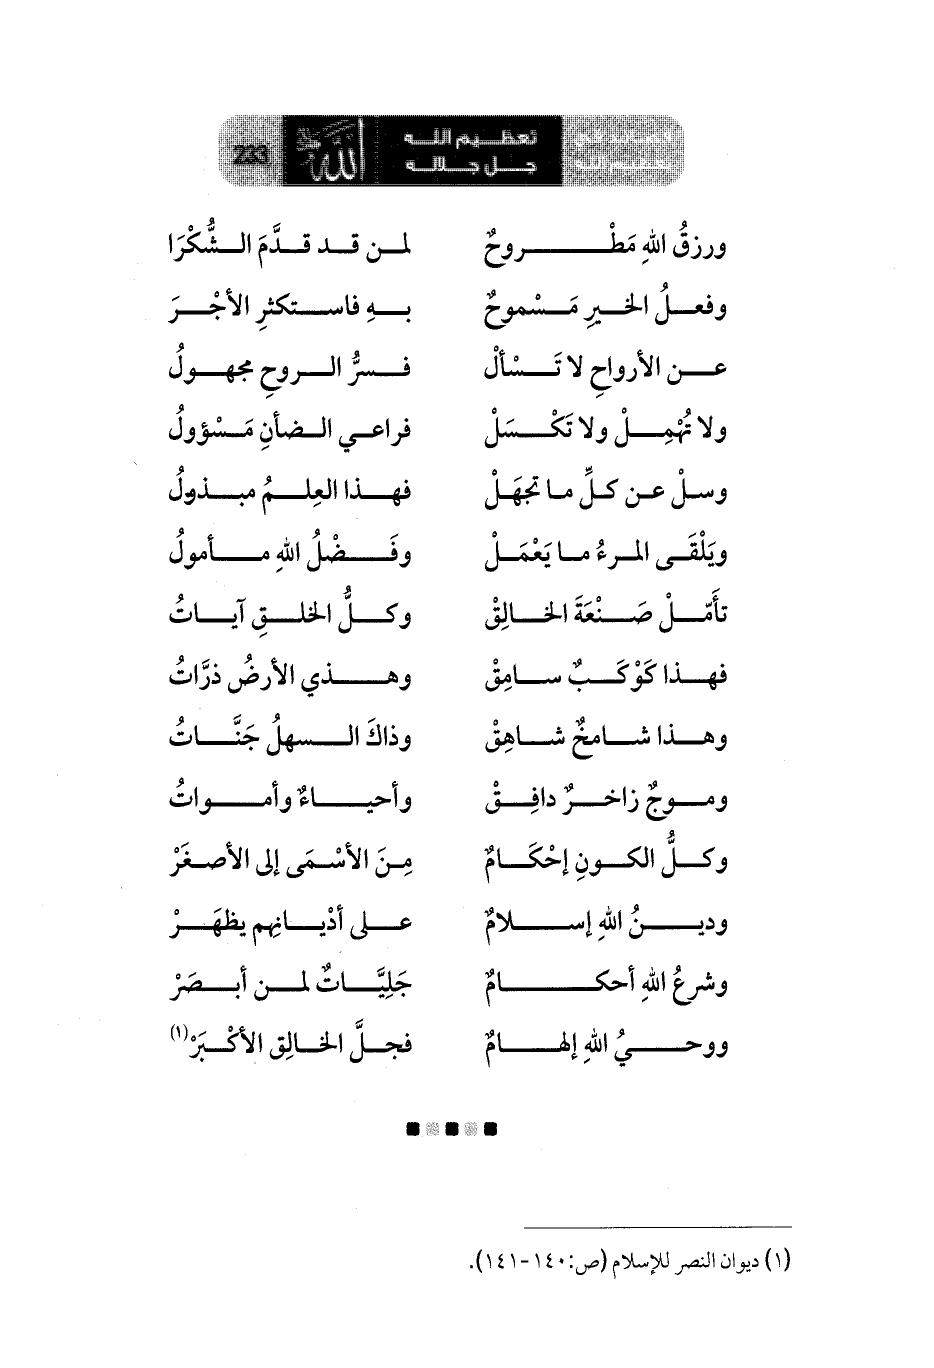 233
الله
تعظيم الله
جل جلاله
ورزقُ اللهِ مَطْـــــــروحٌ لمـن قـد قـدَّمَ الـشُّكْرَا
وفعـلُ الخـيرِ مَـسْموحٌ بـهِ فاسـتكثرِ الأجْـرَ
عـن الأرواحِ لا تَـسْألْ فـسرُّ الـروحِ مجهولُ
ولا تُهْمِـلْ ولا تَكْـسَلْ فراعي الـضأنِ مَـسْؤولُ
وسلْ عن كلِّ ما تجهَلْ فهـذا العِلـمُ مبـذولُ
ويَلْقَى المرءُ ما يَعْمَلْ وفَـضْلُ اللهِ مـأمولُ
تأمّلْ صَـنْعَةَ الخـالِقْ وكـلُّ الخلـقِ آيـاتُ
فهـذا كَوْكَـبٌ سـامِقْ وهـذي الأرضُ ذرَّاتُ
وهـذا شـامخٌ شـاهِقْ وذاكَ الـسهلُ جَنَّـاتُ
ومـوجٌ زاخـرٌ دافِـقْ وأحيـاءٌ وأمـواتُ
وكـلُّ الكـونِ إحْكَـامٌ مِـنَ الأسْـمَى إلى الأصـغَرْ
وديـنُ اللهِ إسـلامٌ عـلى أدْيـانِهم يظهَـرْ
وشرعُ اللهِ أحكـامٌ جَلِيَّـاتٌ لمـن أبـصَرْ
ووحـيُ اللهِ إلهـامٌ فجـلَّ الخـالِق الأكْـبَرْ(١)
(١) ديوان النصر للإسلام (ص:١٤٠-١٤١).